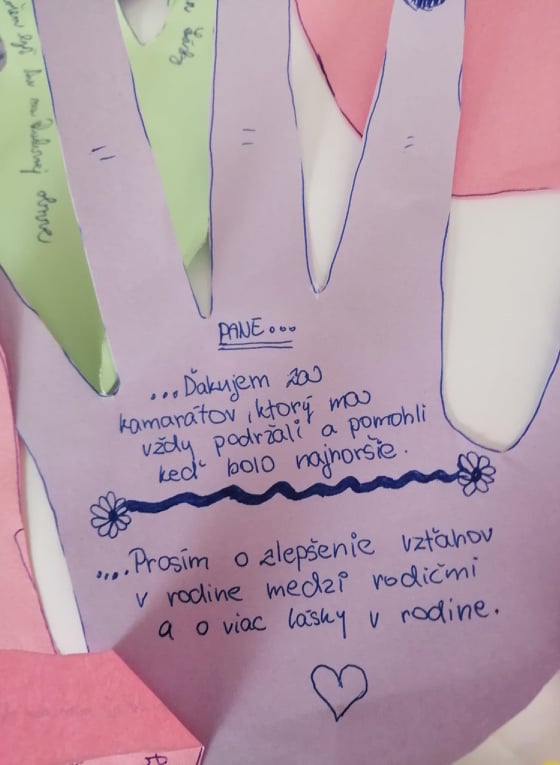 PANE...
...Ďakujem za
kamarátov, ktorý ma
vždy podržali a pomohli
keď bolo najhoršie.
....Prosím o zlepšenie vzťahov
v rodine medzi rodičmi
a o viac lásky v rodine.